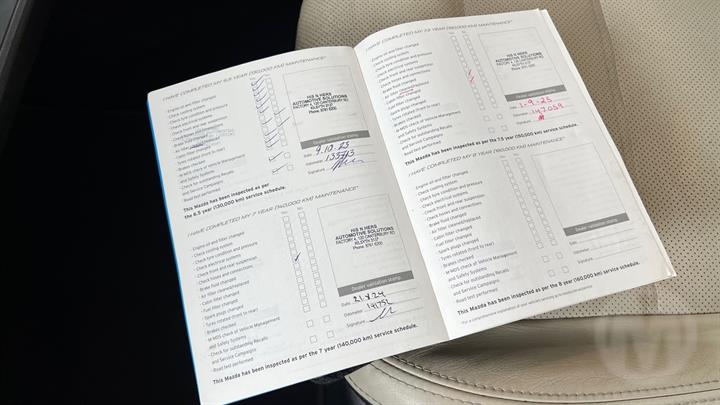 I HAVE COMPLETED MY 6.5 YEAR (130,000 KM) MAINTENANCE*
- Engine oil and filter changed
- Check cooling system
- Check tyre condition and pressure
- Check electrical systems
- Check front and rear suspension
- Check hoses and connections
- Brake fluid changed
- Cabin filter changed
- Tyres rotated (front to rear)
- Brakes checked
- M-MDS check of Vehicle Management
and Safety Systems
- Check for outstanding Recalls
and Service Campaigns
- Road test performed
HIS N HERS
AUTOMOTIVE SOLUTIONS
FACTORY 4, 120 CANTERBURY RD,
KILSYTH 3137
Phone: 8761 6200
Dealer validation stamp
Date:
Odometer:
Signature:
This Mazda has been inspected as per
the 6.5 year (130,000 km) service schedule.
I HAVE COMPLETED MY 7 YEAR (140,000 KM) MAINTENANCE*
- Engine oil and filter changed
- Check cooling system
- Check tyre condition and pressure
- Check electrical systems
- Check front and rear suspension
- Check hoses and connections
- Brake fluid changed
- Air filter cleaned/replaced
- Cabin filter changed
- Fuel filter changed
- Spark plugs changed
- Tyres rotated (front to rear)
- Brakes checked
- M-MDS check of Vehicle Management
and Safety Systems
- Check for outstanding Recalls
and Service Campaigns
- Road test performed
HIS N HERS
AUTOMOTIVE SOLUTIONS
FACTORY 4, 120 CANTERBURY RD,
KILSYTH 3137
Phone: 8761 6200
Dealer validation stamp
Date: 21.8.24
Odometer: 141752
Signature:
This Mazda has been inspected as per the 7 year (140,000 km) service schedule.
I HAVE COMPLETED MY 7.5 YEAR (150,000 KM) MAINTENANCE*
- Engine oil and filter changed
- Check cooling system
- Check tyre condition and pressure
- Check electrical systems
- Check front and rear suspension
- Check hoses and connections
- Brake fluid changed
- Cabin filter changed
- Fuel filter changed
- Spark plugs changed
- Tyres rotated (front to rear)
- Brakes checked
- M-MDS check of Vehicle Management
and Safety Systems
- Check for outstanding Recalls
and Service Campaigns
- Road test performed
HIS N HERS
AUTOMOTIVE SOLUTIONS
FACTORY 4, 120 CANTERBURY RD,
KILSYTH 3137
Phone: 8761 6200
Dealer validation stamp
Date: 1-9-25
Odometer: 147059
Signature:
This Mazda has been inspected as per the 7.5 year (150,000 km) service schedule.
I HAVE COMPLETED MY 8 YEAR (160,000 KM) MAINTENANCE*
- Engine oil and filter changed
- Check cooling system
- Check tyre condition and pressure
- Check electrical systems
- Check front and rear suspension
- Check hoses and connections
- Brake fluid changed
- Air filter cleaned/replaced
- Cabin filter changed
- Fuel filter changed
- Spark plugs changed
- Tyres rotated (front to rear)
- Brakes checked
- M-MDS check of Vehicle Management
and Safety Systems
- Check for outstanding Recalls
and Service Campaigns
- Road test performed
Dealer validation stamp
Date:
Odometer:
Signature:
This Mazda has been inspected as per the 8 year (160,000 km) service schedule.